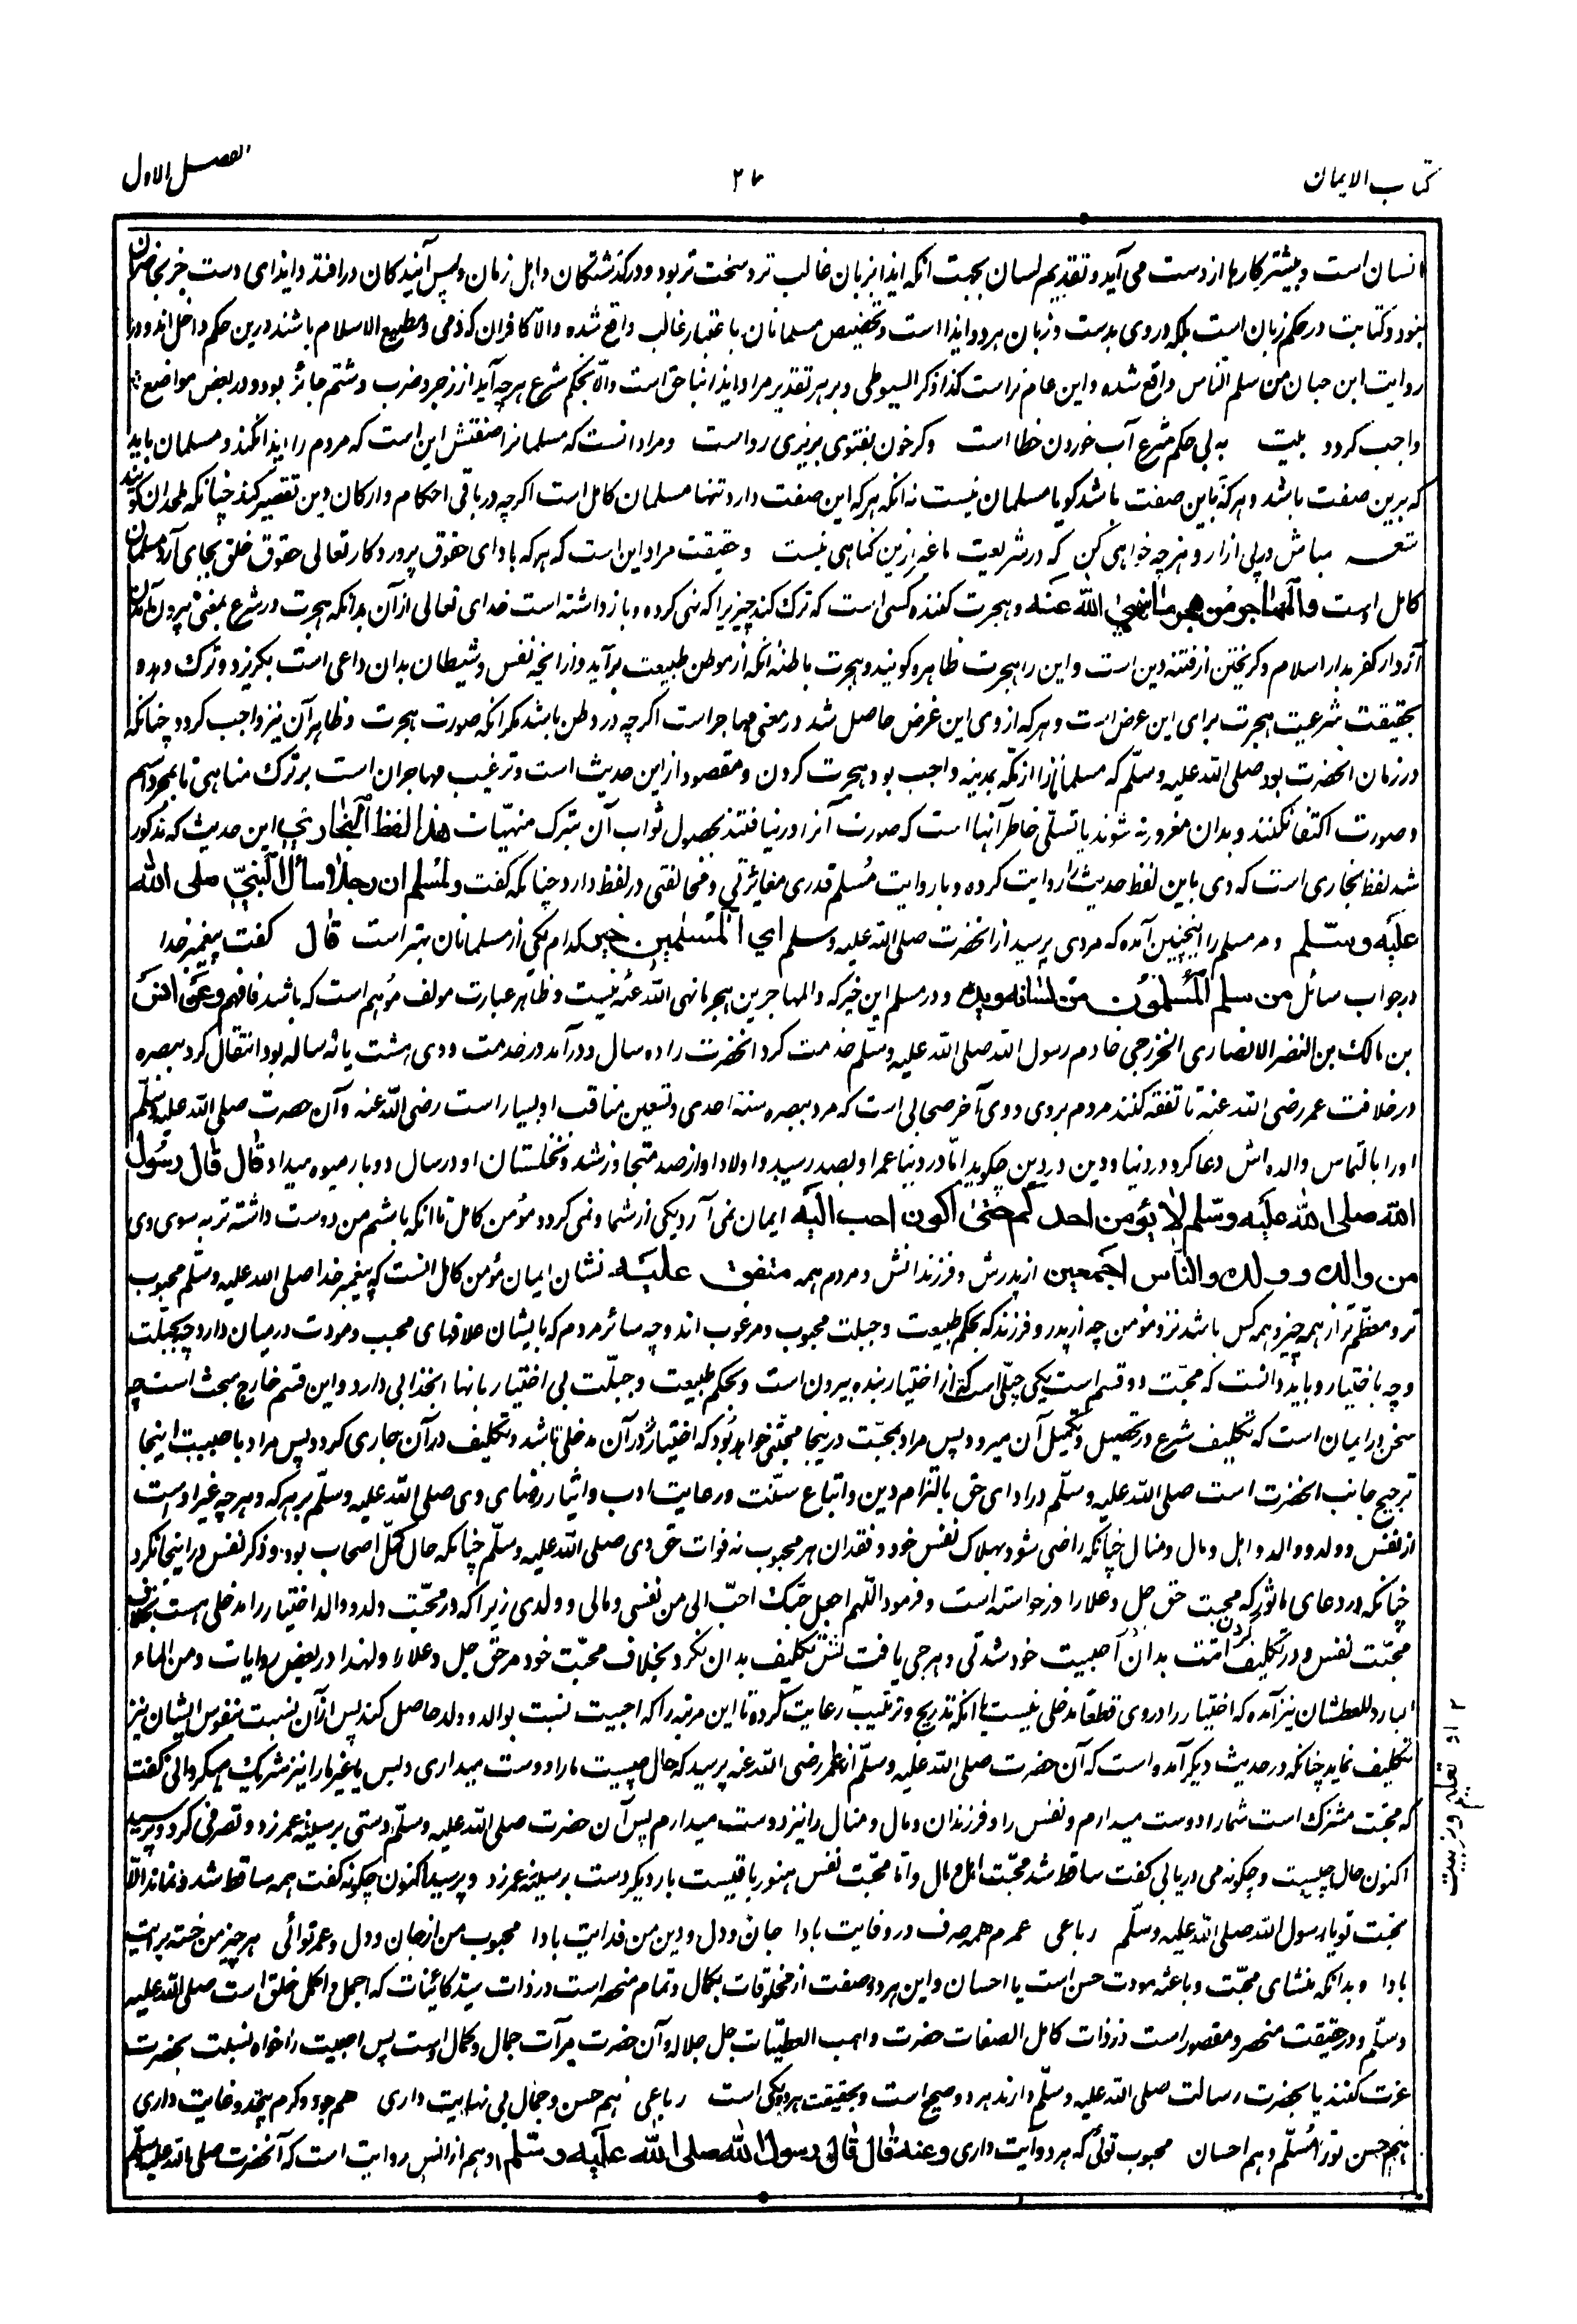 کتاب الایمان
۲۷
الفصل الاول
انسان است و بیشتر کارها از دست می آید و تقدیم لسان بجهت انکه ایذا بزبان غالب تر و سخت تر بود و در گذشتگان و اهل زمان و پس آیندگان در افتد و ایذای دست جز بحاضران
نبود و کتابت در حکم زبان است بلکه در وی بدست و زبان هر دو ایذا است و تخصیص مسلمانان باعتبار غالب واقع شده والا کافران که ذمی و مطیع الاسلام باشند درین حکم داخل اند و در
روایت ابن حبان من سلم الناس واقع شده و این عام تر است کذا ذکر السیوطی و بر هر تقدیر مراد ایذا بناحق است والا بحکم شرع هر چه آید از زجر و ضرب و شتم جائز بود و در بعض مواضع
واجب گردد بیت به بی حکم شرع آب خوردن خطا است وگر خون بفتوی بریزی رواست و مراد انست که مسلمانرا صفتش این است که مردم را ایذا نکند و مسلمان باید
که برین صفت باشد و هرکه باین صفت نباشد گویا مسلمان نیست نه انکه هرکه این صفت دارد تنها مسلمان کامل است اگرچه در باقی احکام و ارکان دین تقصیر کند چنانکه ملحدان گویند
شعر مباش در پی ازار و هر چه خواهی کن که در شریعت ما غیر ازین گناهی نیست و حقیقت مراد این است که هرکه با ادای حقوق پروردگار تعالی حقوق خلق بجای آرد مسلمان
کامل است والمهاجر من هجر ما نهی الله عنه و هجرت کننده کسی است که ترک کند چیزیرا که نهی کرده و باز داشته است خدای تعالی از آن بدانکه هجرت در شرع بمعنی بیرون آمدن
از دار کفر بدار اسلام و گریختن از فتنه دین است و این را هجرت ظاهره گویند و هجرت باطنه انکه از موطن طبیعت برآید و از انچه نفس و شیطان بدان داعی است بگریزد و ترک دهد
بحقیقت شرعیت هجرت برای این غرض است و هرکه از وی این غرض حاصل شد در معنی مهاجر است اگرچه در وطن باشد مگر انکه صورت هجرت و ظاهر آن نیز واجب گردد چنانکه
در زمان انحضرت بود صلی الله علیه وسلم که مسلمانانرا از مکه بمدینه واجب بود هجرت کردن و مقصود از این حدیث است و ترغیب مهاجران است بر ترک مناهی تا بمجرد اسم
و صورت اکتفا نکنند و بدان مغرور نه شوند یا تسلی خاطر آنها است که صورت آنرا در نیافتند بحصول ثواب آن بترک منهیات هذا لفظ البخاری این حدیث که مذکور
شد لفظ بخاری است که وی باین لفظ حدیث را روایت کرده و با روایت مسلم قدری مغائرتی و مخالفتی در لفظ دارد چنانکه گفت ولمسلم ان رجلا سأل النبی صلی الله
علیه وسلم و مر مسلم را اینچنین آمده که مردی پرسید از انحضرت صلی الله علیه وسلم ای المسلمین خیر کدام یکی از مسلمانان بهتر است قال گفت پیغمبر خدا
در جواب سائل من سلم المسلمون من لسانه ویده و در مسلم این خبر که والمهاجر من هجر ما نهی الله عنه نیست و ظاهر عبارت مولف موهم است که باشد فافهم وعن انس
بن مالک بن النضر الانصاری الخزرجی خادم رسول الله صلی الله علیه وسلم خدمت کرد انحضرت را ده سال و درآمد در خدمت و وی هشت یا نه ساله بود انتقال کرد ببصره
در خلافت عمر رضی الله عنه تا تفقه کنند مردم بروی و وی آخر صحابی است که مرد ببصره سنة احدی و تسعین مناقب او بسیار است رضی الله عنه و آن حضرت صلی الله علیه وسلم
اورا بالتماس والده اش دعا کرد در دنیا و دین در دین چگوید اما در دنیا عمر او بصد رسید و اولاد او از صد متجاوز شد و نخلستان او در سال دو بار میوه میداد قال قال رسول
الله صلی الله علیه وسلم لا یؤمن احدکم حتی اکون احب الیه ایمان نمی آرد یکی از شما و نمی گردد مؤمن کامل تا انکه باشم من دوست داشته تر به سوی وی
من والده وولده والناس اجمعین از پدرش و فرزندانش و مردم همه متفق علیه نشان ایمان مؤمن کامل انست که پیغمبر خدا صلی الله علیه وسلم محبوب
تر و معظم تر از همه چیز و همه کس باشد نزد مؤمن چه از پدر و فرزند که بحکم طبیعت و جبلت محبوب و مرغوب اند و چه سائر مردم که با ایشان علاقهای محبت و مودت درمیان دارد چه بجبلت
و چه باختیار و باید دانست که محبت دو قسم است یکی جبلی است که از اختیار بنده بیرون است و بحکم طبیعت و جبلت بی اختیار بانها انجذابی دارد و این قسم خارج مبحث است چه
سخن در ایمان است که تکلیف شرع در تحصیل و تکمیل آن میرود پس مراد بمحبت درینجا محبتی خواهد بود که اختیار را در آن مدخلی باشد و تکلیف در آن جاری گردد پس مراد باحبیت اینجا
ترجیح جانب انحضرت است صلی الله علیه وسلم در ادای حق بالتزام دین و اتباع سنت و رعایت ادب و ایثار رضای وی صلی الله علیه وسلم بر هر که و هر چه غیر اوست
از نفس و ولد و والد و اهل و مال و منال چنانکه راضی شود بهلاک نفس خود و فقدان هر محبوب نه فوات حق وی صلی الله علیه وسلم چنانکه حال کمل اصحاب بود و ذکر نفس در اینجا نکرد
چنانکه در دعای ماثور که محبت حق جل و علا را درخواسته است و فرمود اللهم اجعل حبک احب الی من نفسی ومالی وولدی زیرا که در محبت ولد و والد اختیار را مدخلی هست بخلاف
محبت نفس و در تکلیف کردن امت بدان احبیت خود شدتی و حرجی یافت تکلیف بدان نکرد بخلاف محبت خود مر حق جل و علا را و لهذا در بعض روایات ومن الماء
البارد للعطشان نیز آمده که اختیار را در وی قطعا مدخلی نیست یا انکه تدریج و ترتیب رعایت کرده تا این مرتبه را که احبیت نسبت بوالد و ولد حاصل کند پس از آن نسبت بنفوس ایشان نیز
تکلیف نماید چنانکه در حدیث دیگر آمده است که آن حضرت صلی الله علیه وسلم از عمر رضی الله عنه پرسید که حال چیست ما را دوست میداری و بس یا غیر ما را نیز شریک میگردانی گفت
که محبت مشترک است شما را دوست میدارم و نفس را و فرزندان و مال و منال را نیز دوست میدارم پس آن حضرت صلی الله علیه وسلم دستی بر سینه عمر زد و تصرفی کرد و پرسید
اکنون حال چیست و چگونه می دریابی گفت ساقط شد محبت اهل و مال و اما محبت نفس هنوز باقیست بار دیگر دست بر سینه عمر زد و پرسید اکنون چگونه گفت همه ساقط شد و نماند الا
محبت تو یا رسول الله صلی الله علیه وسلم رباعی عمرم همه صرف در وفایت بادا جان و دل و دین من فدایت بادا محبوب من از جان و دل و عمر توائی هر چیز من خسته برایت
بادا و بدانکه منشای محبت و باعثه مودت حسن است یا احسان و این هر دو صفت از مخلوقات بکمال و تمام منحصر است در ذات سید کائنات که اجمل و اکمل خلق است صلی الله علیه
وسلم و در حقیقت منحصر و مقصور است در ذات کامل الصفات حضرت واهب العطیات جل جلاله و آن حضرت مرآت جمال و کمال اوست پس احبیت را خواه نسبت بحضرت
عزت کنند یا بحضرت رسالت صلی الله علیه وسلم دارند هر دو صحیح است و بحقیقت هر دو یکی است رباعی هم حسن و جمال بی نهایت داری هم جود و کرم بیحد و غایت داری
هم حسن ترا مسلم و هم احسان محبوب توئی که هر دو آیت داری وعنه قال قال رسول الله صلی الله علیه وسلم و هم از انس روایت است که آنحضرت صلی الله علیه وسلم